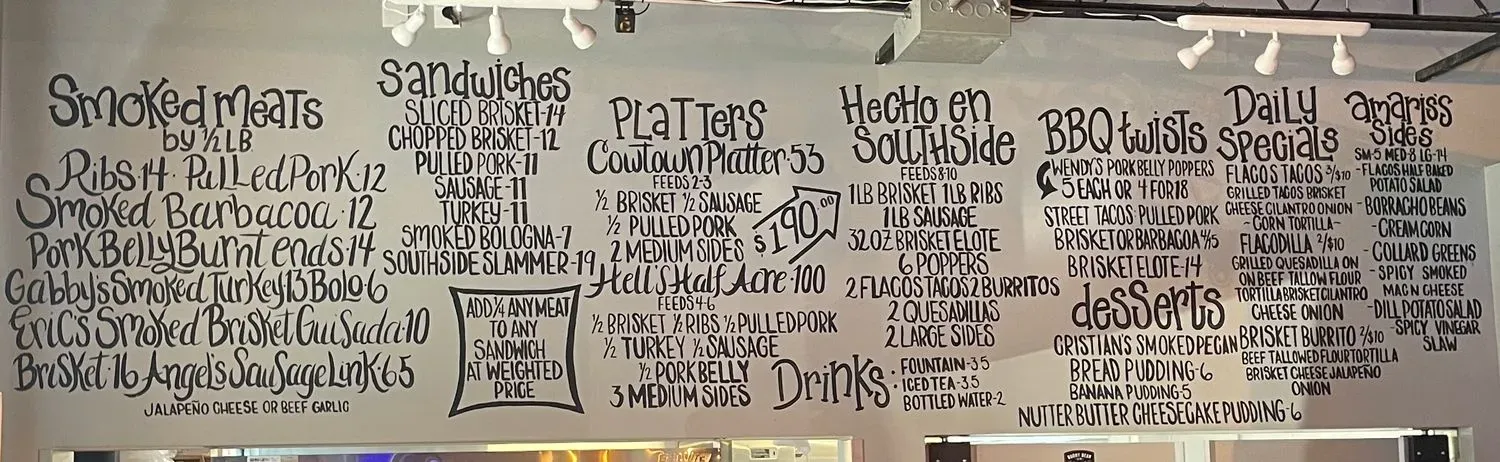 Smoked Meats
by 1/2 LB
Ribs·14· Pulled Pork·12
Smoked Barbacoa·12
Pork Belly Burnt ends·14
Gabby's Smoked Turkey 13 Bolo·6
Eric's Smoked Brisket Guisada·10
Brisket·16 Angel's Sausage Link·65
JALAPEÑO CHEESE OR BEEF GARLIC
Sandwiches
SLICED BRISKET-14
CHOPPED BRISKET-12
PULLED PORK-11
SAUSAGE-11
TURKEY-11
SMOKED BOLOGNA-7
SOUTHSIDE SLAMMER-19
ADD 1/4 ANY MEAT
TO ANY
SANDWICH
AT WEIGHTED
PRICE
PLATTERS
Cowtown Platter·53
FEEDS 2-3
1/2 BRISKET 1/2 SAUSAGE
1/2 PULLED PORK
2 MEDIUM SIDES
Hell's Half Acre·100
FEEDS 4-6
1/2 BRISKET 1/2 RIBS 1/2 PULLED PORK
1/2 TURKEY 1/2 SAUSAGE
1/2 PORK BELLY
3 MEDIUM SIDES
$190.00
Hecho en
Southside
FEEDS 8-10
1LB BRISKET 1LB RIBS
1LB SAUSAGE
32OZ BRISKET ELOTE
6 POPPERS
2 FLACOS TACOS 2 BURRITOS
2 QUESADILLAS
2 LARGE SIDES
Drinks:
FOUNTAIN-3.5
ICED TEA-3.5
BOTTLED WATER-2
BBQ twists
WENDY'S PORK BELLY POPPERS
5 EACH OR 4 FOR 18
STREET TACOS: PULLED PORK
BRISKET OR BARBACOA 4/5
BRISKET ELOTE-14
desserts
CRISTIAN'S SMOKED PECAN
BREAD PUDDING-6
BANANA PUDDING-5
NUTTER BUTTER CHEESECAKE PUDDING-6
Daily
Specials
FLACOS TACOS 3/$10
GRILLED TACOS BRISKET
CHEESE CILANTRO ONION
-CORN TORTILLA-
FLACODILLA 2/$10
GRILLED QUESADILLA ON
ON BEEF TALLOW FLOUR
TORTILLA BRISKET CILANTRO
CHEESE ONION
BRISKET BURRITO 2/$10
BEEF TALLOWED FLOUR TORTILLA
BRISKET CHEESE JALAPEÑO
ONION
amaris's
Sides
SM-5 MED-8 LG-14
-FLACOS HALF BAKED
POTATO SALAD
-BORRACHO BEANS
-CREAM CORN
-COLLARD GREENS
-SPICY SMOKED
MAC N CHEESE
-DILL POTATO SALAD
-SPICY VINEGAR
SLAW